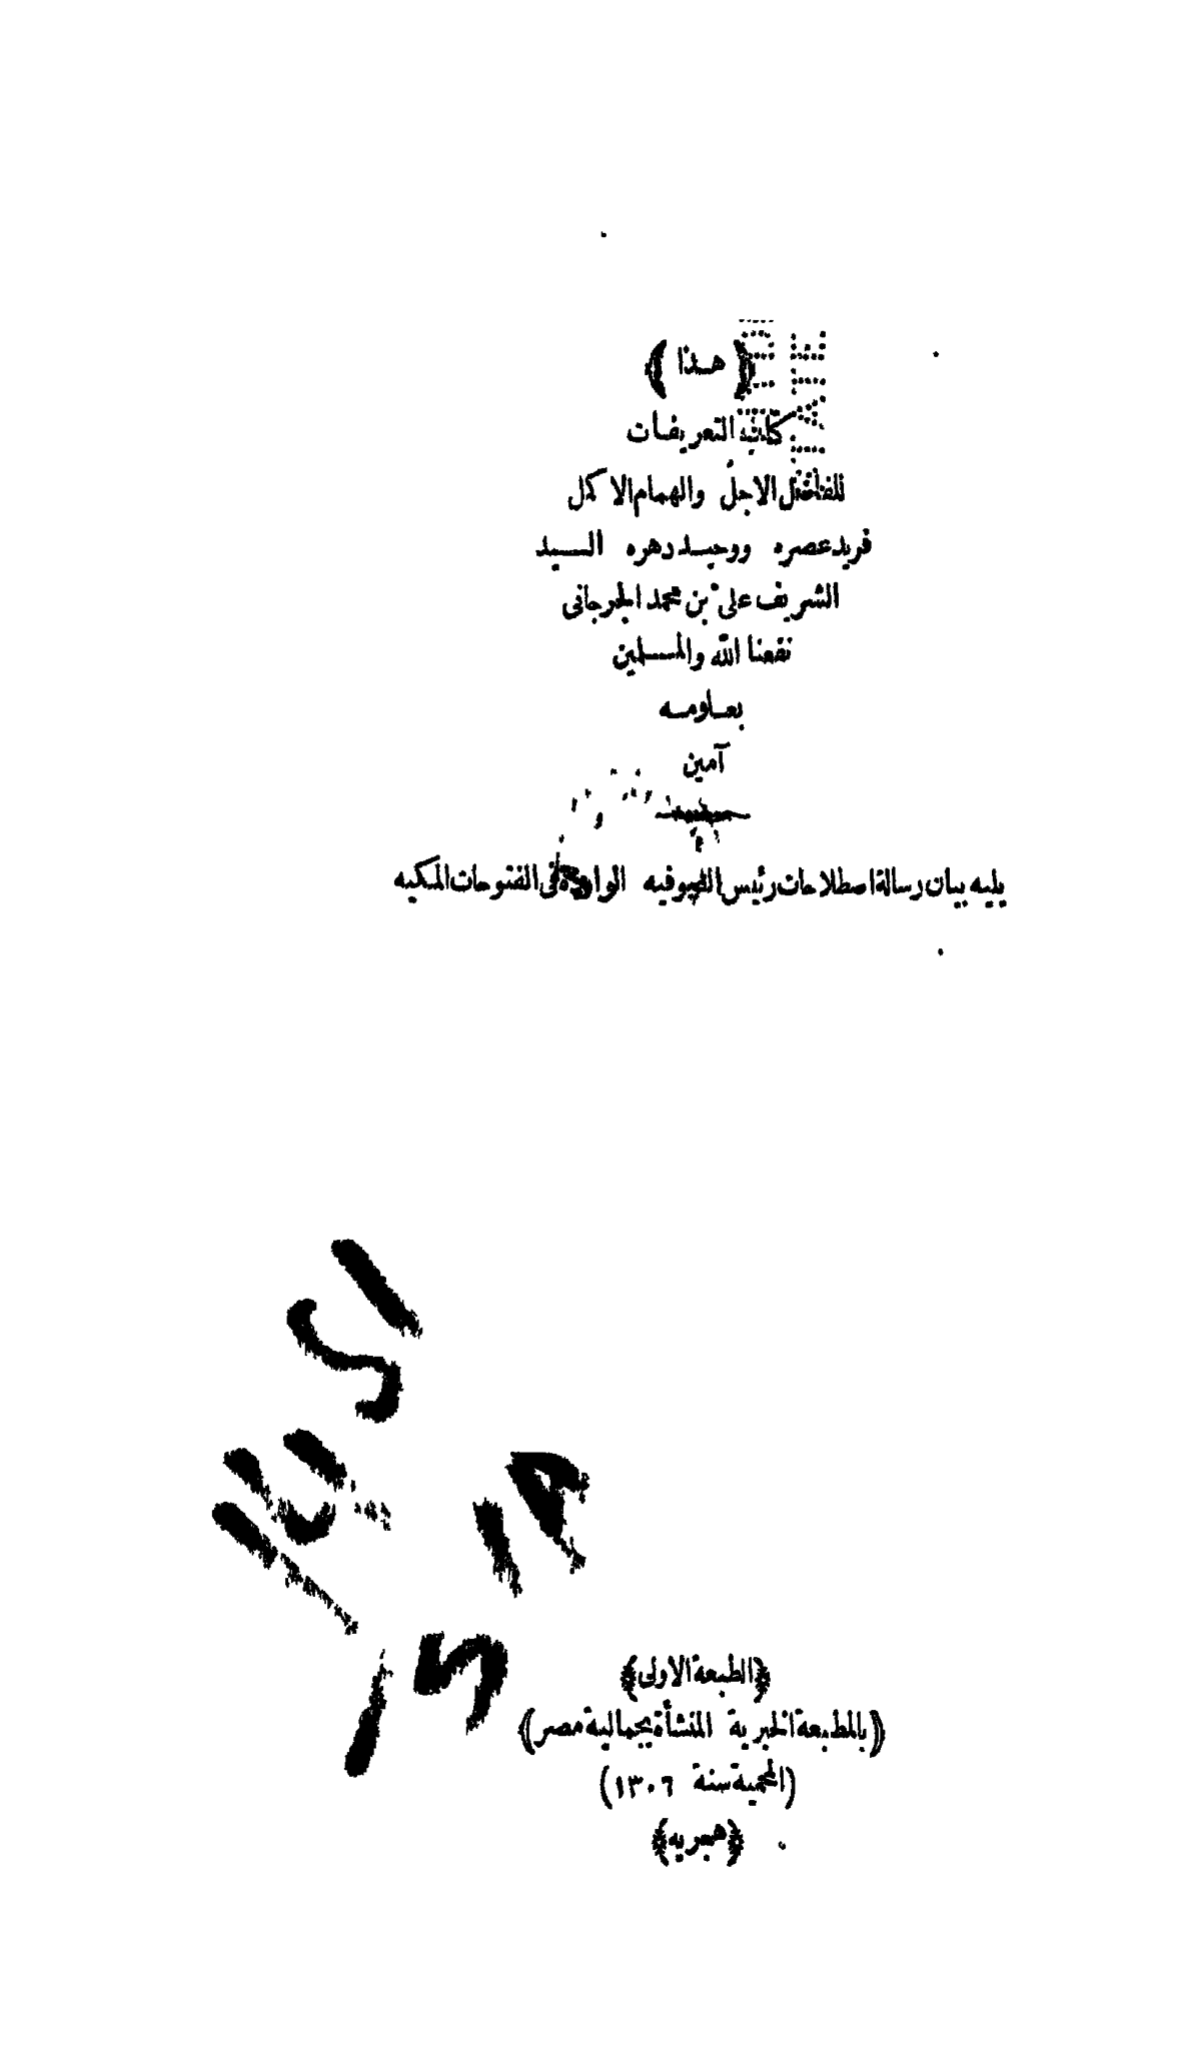 ﴿هـذا﴾
كتاب التعريفات
للفاضل الاجلّ والهمام الاكمل
فريدعصره ووحيـد دهره السـيد
الشريف على بن محمد الجرجانى
نفعنا الله والمسـلمين
بعـلومـه
آمين
يليه بيان رسالة اصطلاحات رئيس الصوفيه الواردة فى الفتوحات المكيه
﴿الطبعة الاولى﴾
(بالمطبعة الخيرية المنشأة بجمالية مصر)
(المحمية سنة ١٣٠٦)
﴿هجريه﴾